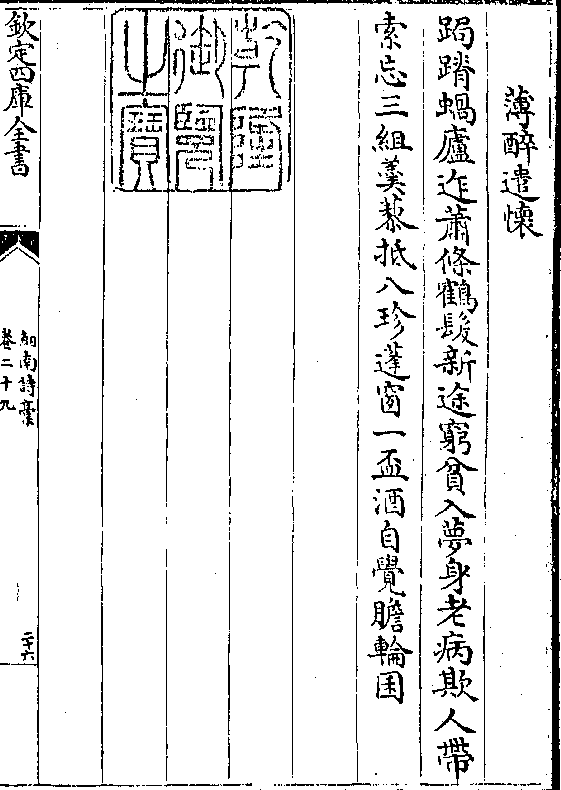 薄醉遣懷
跼蹐蝸廬迮蕭條鶴髮新途窮貧入夢身老病欺人帶
索忘三組羹藜抵八珍蓬窗一盃酒自覺膽輪囷
乾隆
御覽
之寶
欽定四庫全書
劍南詩藁
卷二十九
二十六